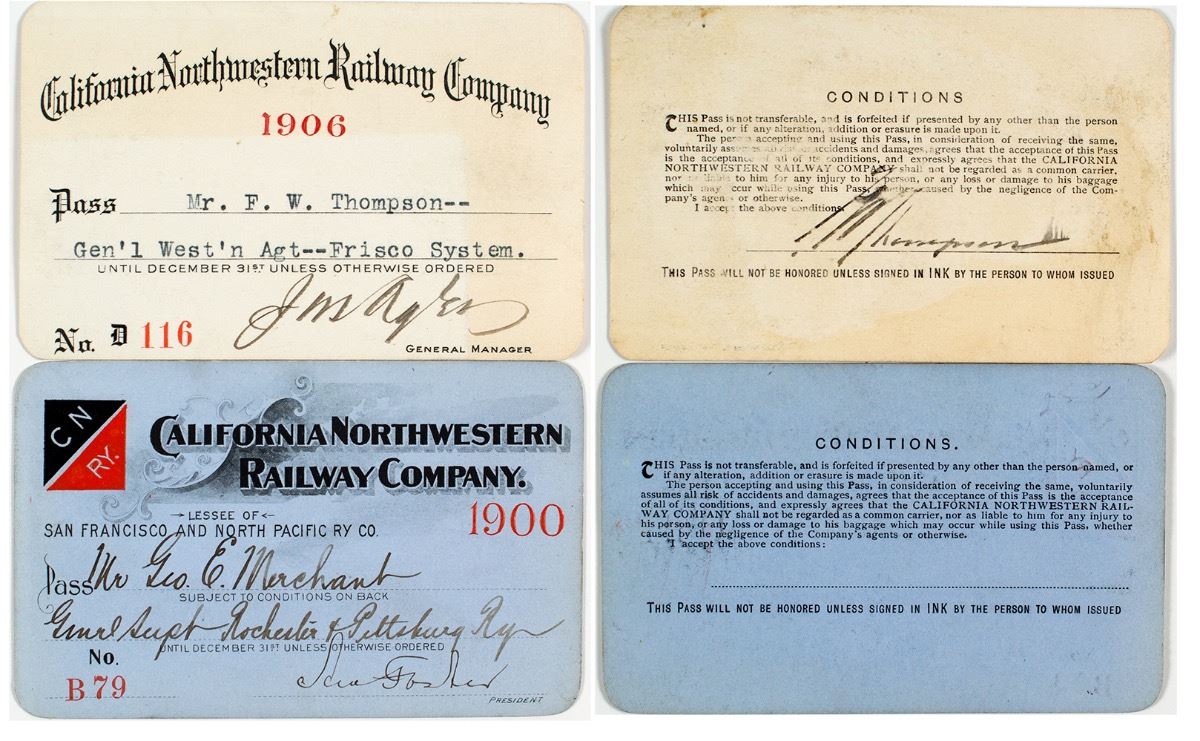 California Northwestern Railway Company
1906
Pass Mr. F. W. Thompson--
Gen'l West'n Agt--Frisco System.
UNTIL DECEMBER 31ST UNLESS OTHERWISE ORDERED
No. D 116
GENERAL MANAGER
CONDITIONS
THIS Pass is not transferable, and is forfeited if presented by any other than the person
named, or if any alteration, addition or erasure is made upon it.
The person accepting and using this Pass, in consideration of receiving the same,
voluntarily assumes all risk of accidents and damages, agrees that the acceptance of this Pass
is the acceptance of all of its conditions, and expressly agrees that the CALIFORNIA
NORTHWESTERN RAILWAY COMPANY shall not be regarded as a common carrier,
nor as liable to him for any injury to his person, or any loss or damage to his baggage
which may occur while using this Pass, whether caused by the negligence of the Com-
pany's agents or otherwise.
I accept the above conditions.
F W Thompson
THIS PASS WILL NOT BE HONORED UNLESS SIGNED IN INK BY THE PERSON TO WHOM ISSUED
CN
RY.
CALIFORNIA NORTHWESTERN
RAILWAY COMPANY.
LESSEE OF
SAN FRANCISCO AND NORTH PACIFIC RY CO.
1900
Pass Mr Geo. E. Merchant
SUBJECT TO CONDITIONS ON BACK
Genrl Supt Rochester & Pittsburg Ry
UNTIL DECEMBER 31ST UNLESS OTHERWISE ORDERED
No.
B 79
Foster
PRESIDENT
CONDITIONS.
THIS Pass is not transferable, and is forfeited if presented by any other than the person named, or
if any alteration, addition or erasure is made upon it.
The person accepting and using this Pass, in consideration of receiving the same, voluntarily
assumes all risk of accidents and damages, agrees that the acceptance of this Pass is the acceptance
of all of its conditions, and expressly agrees that the CALIFORNIA NORTHWESTERN RAIL-
WAY COMPANY shall not be regarded as a common carrier, nor as liable to him for any injury to
his person, or any loss or damage to his baggage which may occur while using this Pass, whether
caused by the negligence of the Company's agents or otherwise.
I accept the above conditions:
THIS PASS WILL NOT BE HONORED UNLESS SIGNED IN INK BY THE PERSON TO WHOM ISSUED